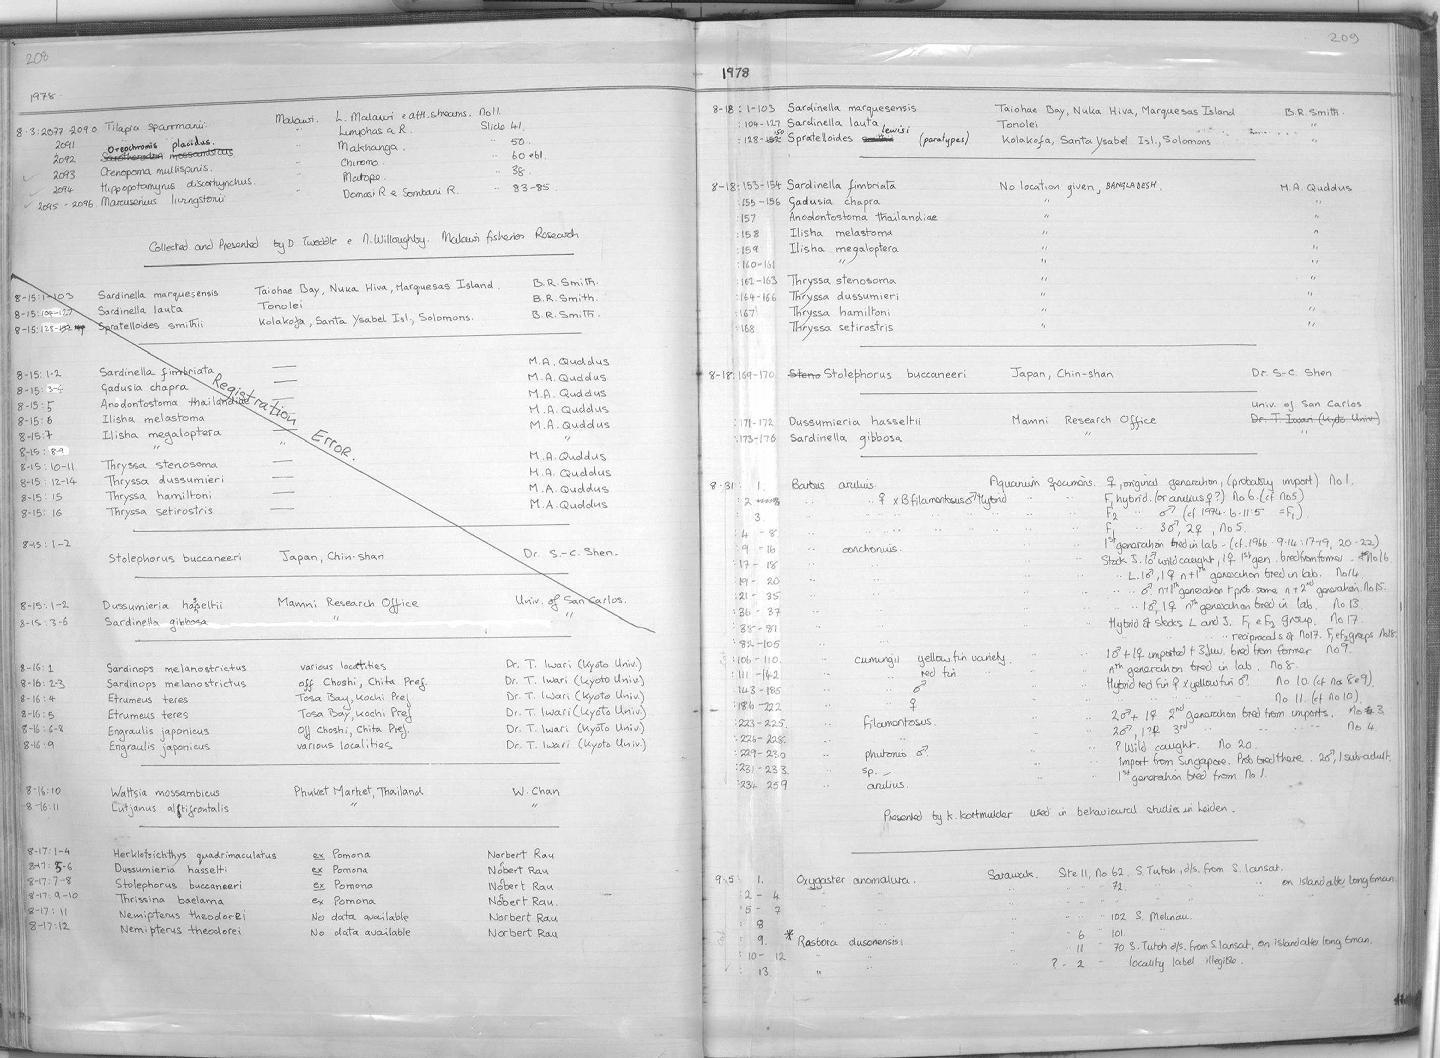 208
1978
8-3:2077-2090 Tilapia sparrmanii. Malawi. L. Malawi & affl. streams. No 11.
2091 Oreochromis placidus. " Lumphasa R. Slide 41.
2092 Sarotherodon mossambicus " Makhanga. " 50.
2093 Ctenopoma multispinis. " Chiromo. " 60 ebl.
2094 Hippopotamyrus discorhynchus. " Matope. " 38.
2095 - 2096 Marcusenius livingstonii " Domasi R & Sombani R. " 83-85.
Collected and Presented by D. Tweddle & N. Willoughby. Malawi fisheries Research
8-15:1-103 Sardinella marquesensis Taiohae Bay, Nuka Hiva, Marquesas Island. B.R. Smith.
8-15:104-127 Sardinella lauta Tonolei B.R. Smith.
8-15:128-152 Spratelloides smithii Kolakofa, Santa Ysabel Isl., Solomons. B.R. Smith.
8-15:1-2 Sardinella fimbriata — M.A. Quddus
8-15:3-4 Gadusia chapra — M.A. Quddus
8-15:5 Anodontostoma thailandiae — M.A. Quddus
8-15:6 Ilisha melastoma — M.A. Quddus
8-15:7 Ilisha megaloptera — M.A. Quddus
8-15:8-9 " " "
8-15:10-11 Thryssa stenosoma — M.A. Quddus
8-15:12-14 Thryssa dussumieri — M.A. Quddus
8-15:15 Thryssa hamiltoni — M.A. Quddus
8-15:16 Thryssa setirostris — M.A. Quddus
Registration Error.
8-15:1-2 Stolephorus buccaneeri Japan, Chin-shan Dr. S.-C. Shen.
8-15:1-2 Dussumieria hasseltii Mamni Research Office Univ. of San Carlos.
8-15:3-6 Sardinella gibbosa " "
8-16:1 Sardinops melanostrictus various localities Dr. T. Iwari (Kyoto Univ.)
8-16:2-3 Sardinops melanostrictus off Choshi, Chita Pref. Dr. T. Iwari (Kyoto Univ.)
8-16:4 Etrumeus teres Tosa Bay, Kochi Pref Dr. T. Iwari (Kyoto Univ.)
8-16:5 Etrumeus teres Tosa Bay, Kochi Pref Dr. T. Iwari (Kyoto Univ.)
8-16:6-8 Engraulis japonicus off Choshi, Chita Pref. Dr. T. Iwari (Kyoto Univ.)
8-16:9 Engraulis japonicus various localities Dr. T. Iwari (Kyoto Univ.)
8-16:10 Wattsia mossambicus Phuket Market, Thailand W. Chan
8-16:11 Lutjanus altifrontalis " "
8-17:1-4 Herklotsichthys quadrimaculatus ex Pomona Norbert Rau
8-17:5-6 Dussumieria hasselti ex Pomona Norbert Rau
8-17:7-8 Stolephorus buccaneeri ex Pomona Norbert Rau
8-17:9-10 Thrissina baelama ex Pomona Norbert Rau.
8-17:11 Nemipterus theodorei No data available Norbert Rau
8-17:12 Nemipterus theodorei No data available Norbert Rau
209
1978
8-18:1-103 Sardinella marquesensis Taiohae Bay, Nuka Hiva, Marquesas Island B.R. Smith.
:104-127 Sardinella lauta Tonolei "
:128-150 Spratelloides lewisi (paratypes) Kolakofa, Santa Ysabel Isl., Solomons "
8-18:153-154 Sardinella fimbriata No location given, BANGLADESH. M.A. Quddus
:155-156 Gadusia chapra " "
:157 Anodontostoma thailandiae " "
:158 Ilisha melastoma " "
:159 Ilisha megaloptera " "
:160-161 " " "
:162-163 Thryssa stenosoma " "
:164-166 Thryssa dussumieri " "
:167 Thryssa hamiltoni " "
:168 Thryssa setirostris " "
8-18:169-170 Steno Stolephorus buccaneeri Japan, Chin-shan Dr. S-C. Shen
Univ. of San Carlos
:171-172 Dussumieria hasseltii Mamni Research Office Dr. T. Iwari (Kyoto Univ.)
:173-176 Sardinella gibbosa " "
8-31: 1. Barbus arulius. Aquarium specimens. ♀, original generation, (probably import) No 1.
:2 " ♀ x B filamentosus ♂ Hybrid " " F1 hybrid. (or arulius ♀?) No 6. (cf No 5)
3. " " " F2 " ♂ (cf 1974.6.11:5 = F1)
:4 - 8. " " " F1 3♂, 2♀, No 5.
:9 - 16 " conchonius. " " 1st generation bred in lab - (cf. 1966.9.14:17-19, 20-22)
:17 - 18 " " Stock J. 1♂ wild caught, 1♀ 1st gen. bred from former. No 16
:19 - 20 " " " L. 1♂, 1♀ n+1th generation bred in lab. No 14.
:21 - 35 " " " ♂ n+1th generation + prob. some n+2nd generation. No 15.
:36 - 37 " " " 1♂, 1♀ nth generation bred in lab. No 13.
:38-81 " " Hybrid of stocks L and J. F1 & F2 group. No 17.
:82-105 " " " reciprocals of No 17. F1 & F2 groups No 18.
:106-110. " cumingii yellow fin variety. " 1♂ + 1♀ imported + 3 juv. bred from former No 9.
:111-142 " " red fin " nth generation bred in lab. No 8.
:143-185 " " ♂ " Hybrid red fin ♀ x yellow fin ♂. No 10. (cf No 8 & 9)
:186-222 " " ♀ " " No 11. (cf No 10).
:223-225. " filamentosus. " 2♂ + 1♀ 2nd generation bred from imports. No 3
:226-228 " " 2♂, 1♀ 3rd " " No 4
:229-230 " phutunio ♂. " ? Wild caught. No 20.
:231-233. " sp. " Import from Singapore. Prob bred there. 2♂, 1 subadult.
:234 259 " arulius. " 1st generation bred from No 1.
Presented by K. Kortmulder used in behavioural studies in Leiden.
9.5 1. Oxygaster anomalura. Sarawak. Ste 11, No 62. S. Tutoh, d/s. from S. Lansat.
:2 - 4 " " " 72. " " on island after long Eman.
:5 - 7 " " "
8 " " " 102 S. Melinau.
9. * Rasbora dusonensis. " 6 101. "
:10 - 12 " " " 11 70 S. Tutoh d/s. from S. Lansat, on island after long Eman.
13. " " ? - 2 locality label illegible.